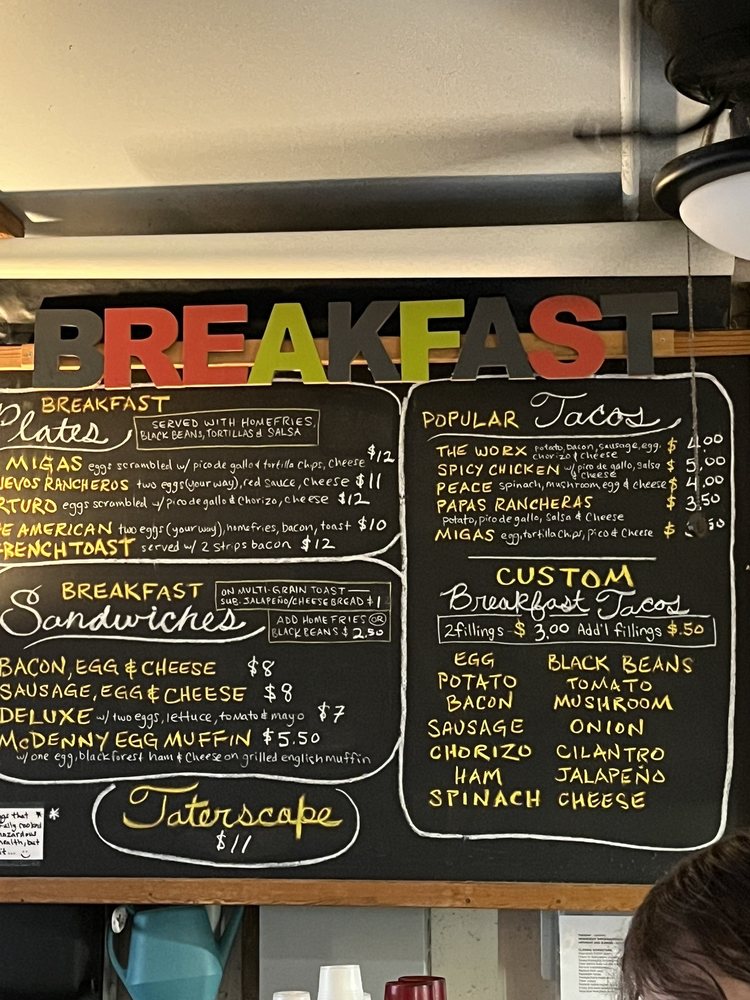 BREAKFAST
BREAKFAST
Plates
SERVED WITH HOMEFRIES,
BLACK BEANS, TORTILLAS & SALSA
MIGAS eggs scrambled w/ pico de gallo & tortilla chips, cheese $12
UEVOS RANCHEROS two eggs (your way), red sauce, cheese $11
RTURO eggs scrambled w/ pico de gallo & chorizo, cheese $12
E AMERICAN two eggs (your way), homefries, bacon, toast $10
FRENCH TOAST served w/ 2 strips bacon $12
BREAKFAST
Sandwiches
ON MULTI-GRAIN TOAST
SUB. JALAPEÑO/CHEESE BREAD $1
ADD HOME FRIES OR
BLACK BEANS $2.50
BACON, EGG & CHEESE $8
SAUSAGE, EGG & CHEESE $8
DELUXE w/ two eggs, lettuce, tomato & mayo $7
McDENNY EGG MUFFIN $5.50
w/ one egg, black forest ham & cheese on grilled english muffin
Taterscape
$11
POPULAR Tacos
THE WORX potato, bacon, sausage, egg, $4.00
chorizo & cheese
SPICY CHICKEN w/ pico de gallo, salsa $5.00
& cheese
PEACE spinach, mushroom, egg & cheese $4.00
PAPAS RANCHERAS $3.50
potato, pico de gallo, salsa & cheese
MIGAS egg, tortilla chips, pico & cheese $
CUSTOM
Breakfast Tacos
2 fillings - $3.00 Add'l fillings $.50
EGG BLACK BEANS
POTATO TOMATO
BACON MUSHROOM
SAUSAGE ONION
CHORIZO CILANTRO
HAM JALAPEÑO
SPINACH CHEESE
that
health, but